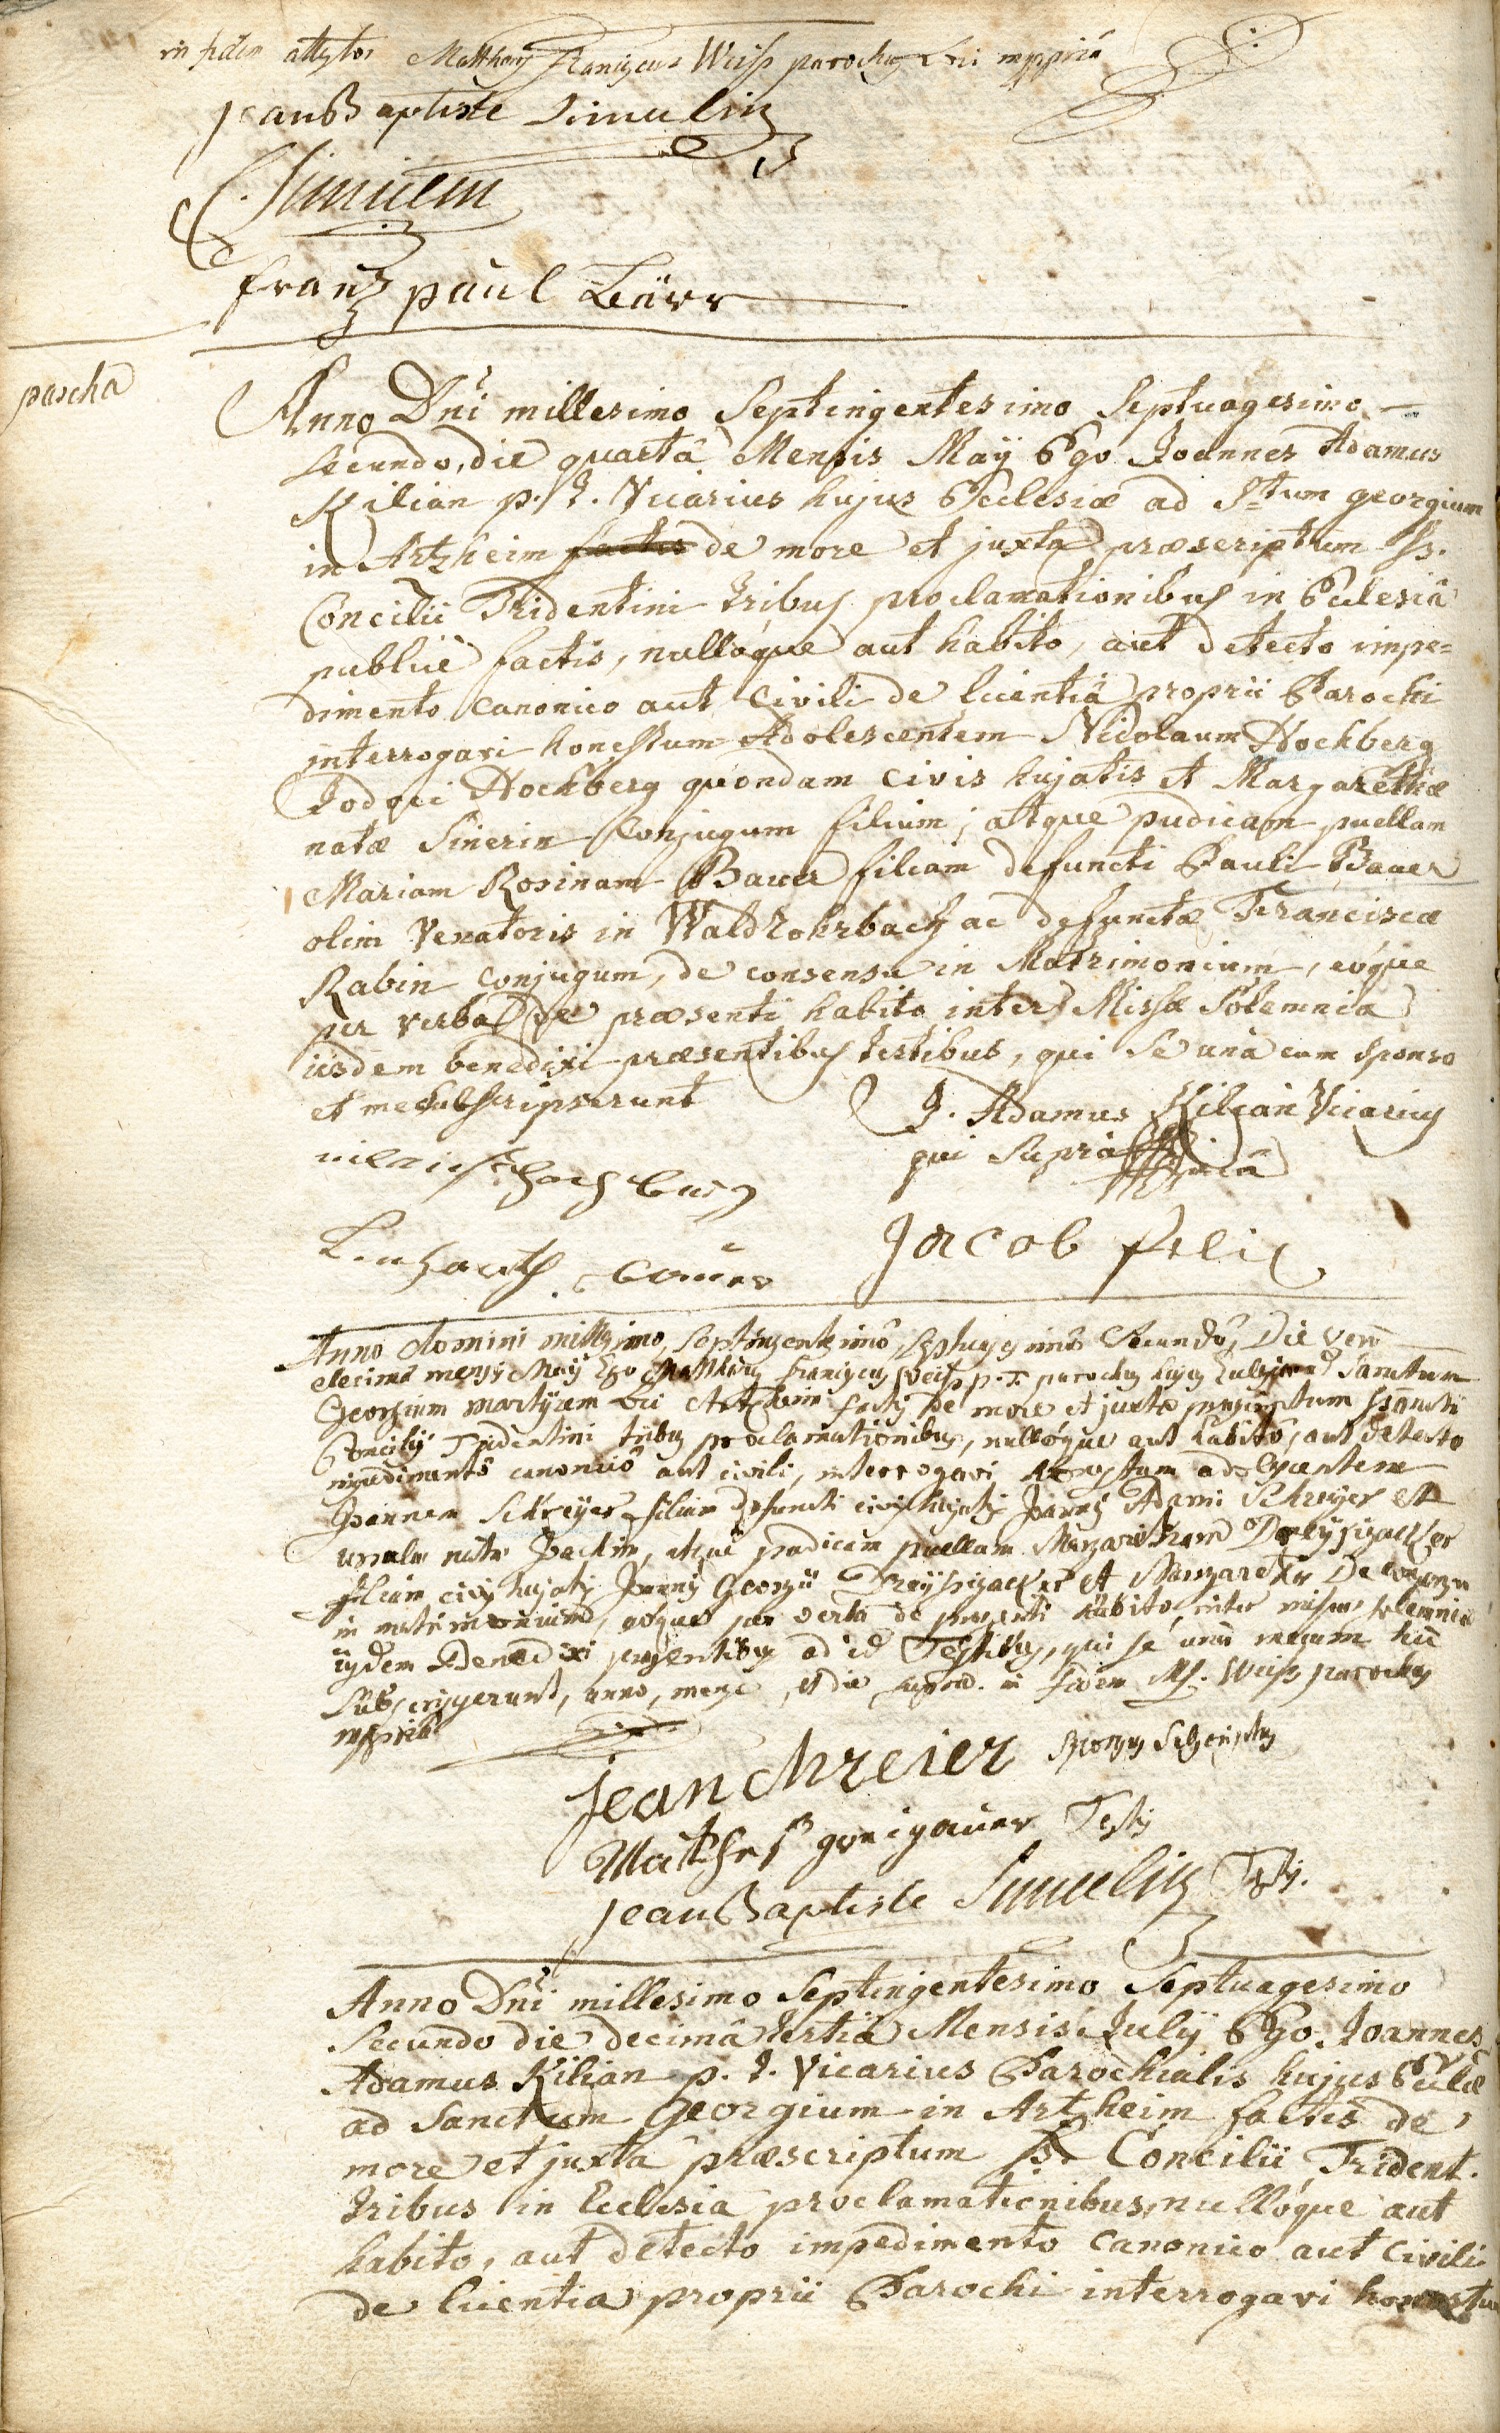 in fidem attestor Matthæus Franciscus Weiss parochus loci mppria
Jean Baptiste Simulin
Simulin
frantz paul Bärr
pascha
Anno Dni millesimo Septingentesimo Septuagesimo
secundo, die quartâ Mensis Maÿ Ego Joannes Adamus
Kilian p. t. Vicarius hujus Ecclesiæ ad S:tum georgium
in Artzheim factis de more et juxta præscriptum Ss.
Concilii Tridentini tribus proclamationibus in Ecclesiâ
publicè factis, nullóque aut habito, aut detecto impe=
dimento canonico aut civili de licentiâ proprii Parochi
interrogavi honestum Adolescentem Nicolaum Hochberg
Jodoci Hochberg quondam civis hujatis et Margarethæ
natæ Sinerin Conjugum filium; atque pudicam puellam
Mariam Rosinam Bauer filiam defuncti Pauli Bauer
olim Venatoris in Waldrohrbach ac defunctæ Franciscæ
Rabin conjugum, de consensu in Matrimonium, eóque
per verba de præsenti habito inter Missæ Solemnia
iisdem benedixi præsentibus testibus, qui se unà cum sponso
et me subscripserunt
J. Adamus Kilian Vicarius
qui supra
Jacob felix
Anno domini millesimo, septingentesimo, septuagesimo secundo, Die vero
decima mensis Maÿ Ego Matthæus Franciscus Weiss p. t. parochus hujus Ecclesiæ ad Sanctum
Georgium martyrem loci Artzheim factis de more et juxta præscriptum
Concilÿ Tridentini tribus proclamationibus, nullóque aut habito, aut detecto
impedimento canonico aut civili, interrogavi honestum adolescentem
Joannem Schreÿer filium defuncti civis hujatis Joannis Adami Schreyer et
natæ atque pudicam puellam Margaretham Dreÿsigacker
filiam civis hujatis Joannis Georgii Dreÿsigacker et Margarethæ De consensu
in matrimonium, eóque per verba de præsenti habito, inter missæ solemnia
iisdem Benedixi præsentibus ad id Testibus, qui se una mecum hic
Subscripserunt, anno, mense, et die supra. in fidem Mf. Weiss parochus
mppria
jean chreier
Mathes Testis
Jean Baptiste Simulin Testis.
Anno Dni millesimo Septingentesimo Septuagesimo
Secundo die decimâ tertiâ Mensis Julÿ Ego Joannes
Adamus Kilian p. t. Vicarius Parochialis hujus Eccliæ
ad Sanctum Georgium in Artzheim factis de
more et juxta præscriptum Ss. Concilii Trident.
tribus in Ecclesia proclamationibus, nullóque aut
habito, aut detecto impedimento canonico aut civili
de licentia proprii Parochi interrogavi honestum